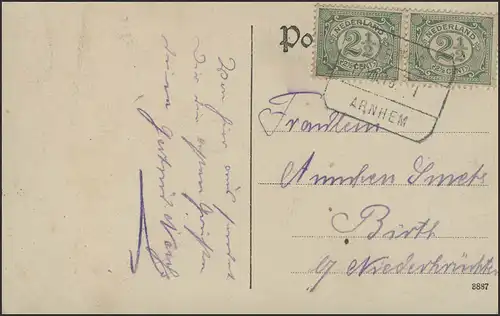 Po
NEDERLAND
2½
CENT
NEDERLAND
2½
CENT
ARNHEM
Fräulein
Annchen Smets
Birth
b/ Niederkrüchten
8887
Von hier aus sendet
Dir die besten Grüße
deine Gertrud